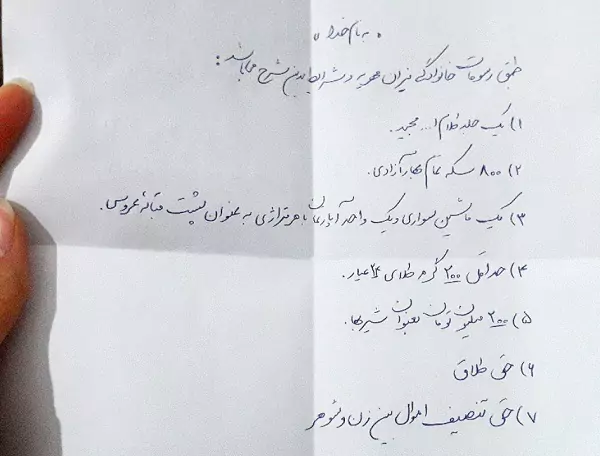 «به نام خدا»
طبق رسومات خانوادگی میزان مهریه و شرایط بدین شرح می‌باشد:
۱) یک جلد کلام ا... مجید.
۲) ۸۰۰ سکه تمام بهار آزادی.
۳) یک ماشین سواری و یک واحد آپارتمان با هر متراژی به عنوان پشت قباله عروس.
۴) حداقل ۲۰۰ گرم طلای ۲۴ عیار.
۵) ۲۰۰ میلیون تومان بعنوان شیربها.
۶) حق طلاق
۷) حق تنصیف اموال بین زن و شوهر